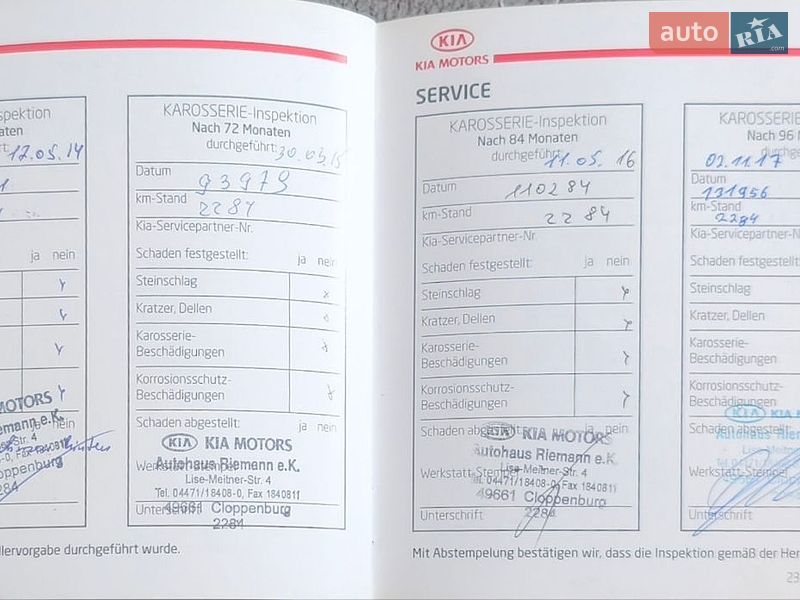 auto RIA .com
spektion
naten
12.05.14
ja nein
KIA MOTORS
Riemann e.K.
Cloppenburg
2284
llervorgabe durchgeführt wurde.
KAROSSERIE-Inspektion
Nach 72 Monaten
durchgeführt:
Datum
93979
km-Stand
2284
Kia-Servicepartner-Nr.
Schaden festgestellt: ja nein
Steinschlag
Kratzer, Dellen
Karosserie-
Beschädigungen
Korrosionsschutz-
Beschädigungen
Schaden abgestellt: ja nein
KIA KIA MOTORS
Autohaus Riemann e.K.
Lise-Meitner-Str. 4
Tel. 04471/18408-0, Fax 1840811
Unterschrift
49661 Cloppenburg
2284
KIA
KIA MOTORS
SERVICE
KAROSSERIE-Inspektion
Nach 84 Monaten
durchgeführt:
11.05.16
Datum
110284
km-Stand
2284
Kia-Servicepartner-Nr.
Schaden festgestellt: ja nein
Steinschlag
Kratzer, Dellen
Karosserie-
Beschädigungen
Korrosionsschutz-
Beschädigungen
Schaden abgestellt: ja nein
KIA KIA MOTORS
Autohaus Riemann e.K.
Lise-Meitner-Str. 4
Werkstatt-Stempel
Tel. 04471/18408-0, Fax 1840811
49661 Cloppenburg
Unterschrift
2284
Mit Abstempelung bestätigen wir, dass die Inspektion gemäß der Her
KAROSSERIE
Nach 96 M
durchgefüh
02.11.17
Datum
131956
km-Stand
2284
Kia-Servicepartner-N
Schaden festgestellt:
Steinschlag
Kratzer, Dellen
Karosserie-
Beschädigungen
Korrosionsschutz-
Beschädigungen
Schaden abgestellt:
KIA KIA
Autohaus Riema
Lise-Meitne
Werkstatt-Stempel
Unterschrift
23